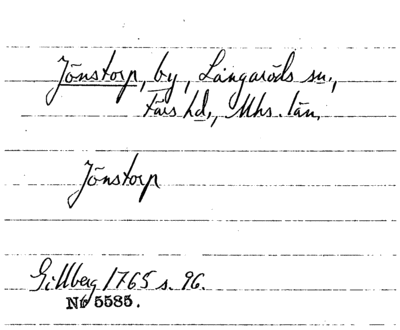 Jönstorp, by, Långaröds sn.,
Färs hd., Mhs. län.
Jönstorp
Gillberg 1765 s. 96.
No 5585.